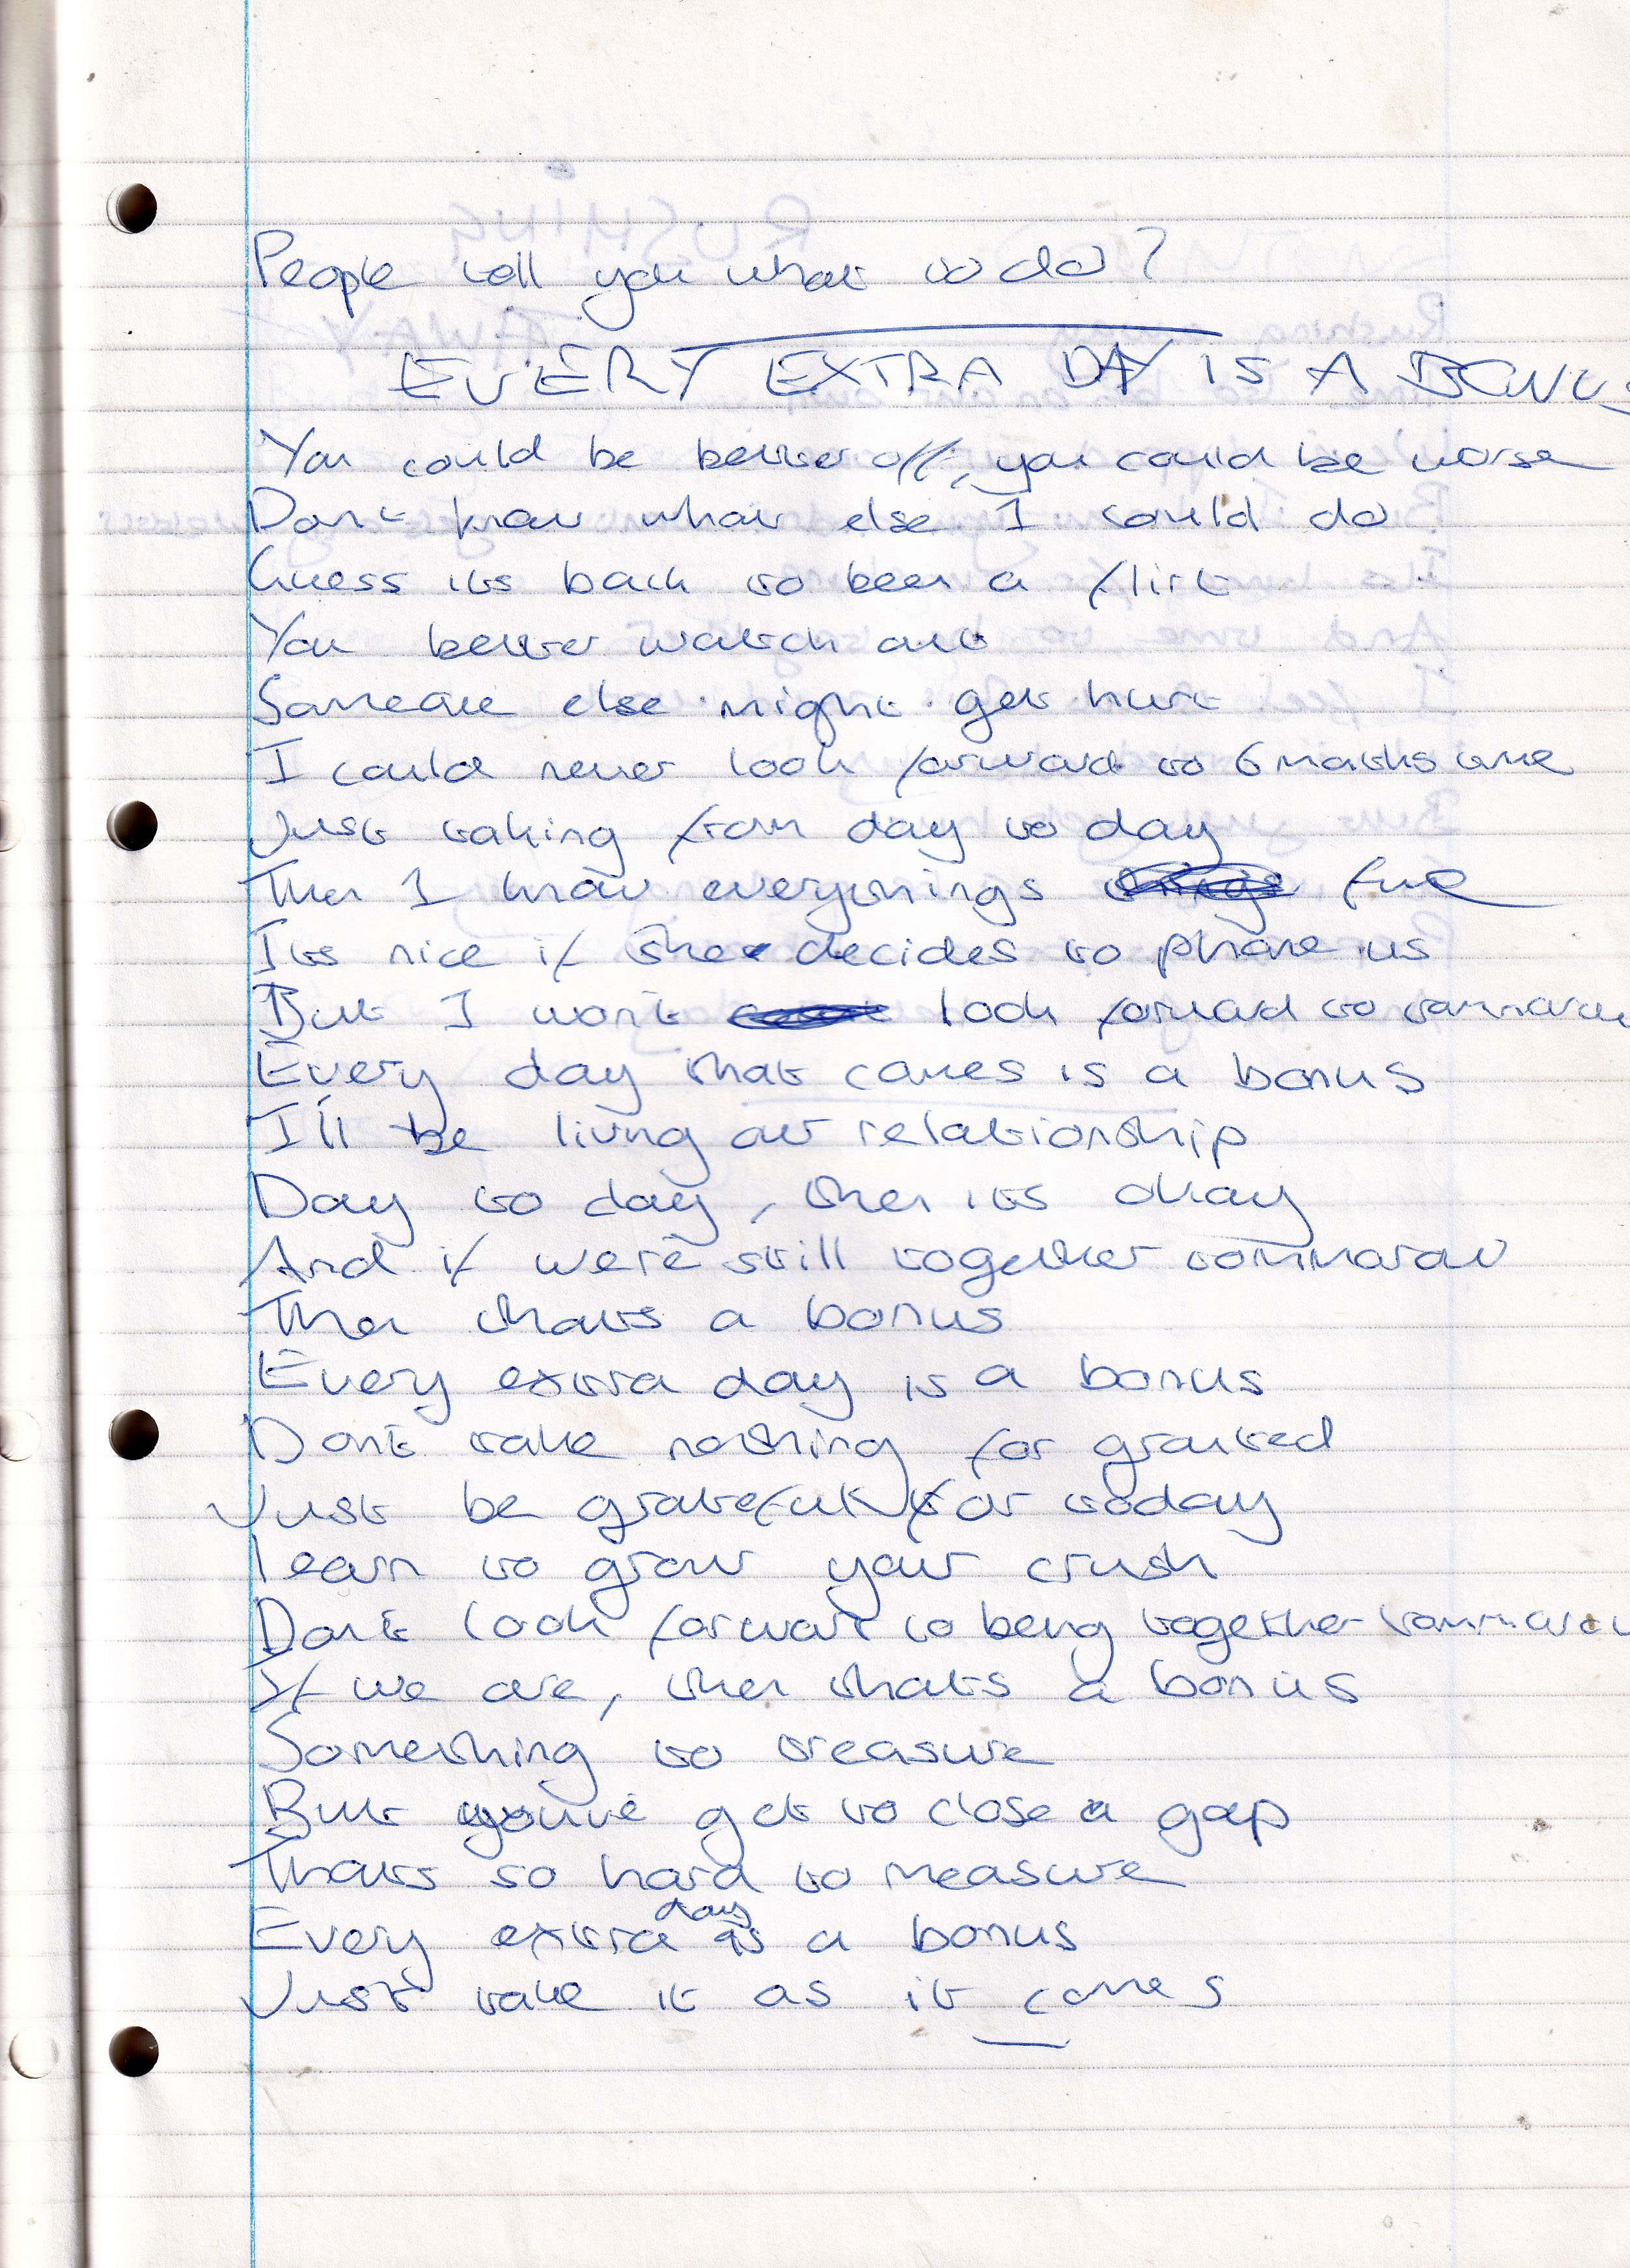 People tell you what to do?
EVERY EXTRA DAY IS A BONUS
You could be better off, you could be worse
Don't know what else I could do
Guess its back to been a flirt
You better watch out
Someone else might get hurt
I could never look forward to 6 months time
Just taking from day to day
Then I know everythings fine
Its nice if she decides to phone us
But I won't look forward to tommorow
Every day that comes is a bonus
I'll be living our relationship
Day to day, then its okay
And if we're still together tommorow
Then thats a bonus
Every extra day is a bonus
Don't take nothing for granted
Just be grateful for today
learn to grow your crush
Don't look forwart to being together tommorow
If we are, then thats a bonus
Something to treasure
But you've got to close a gap
Thats so hard to measure
Every extra day is a bonus
Just take it as it comes